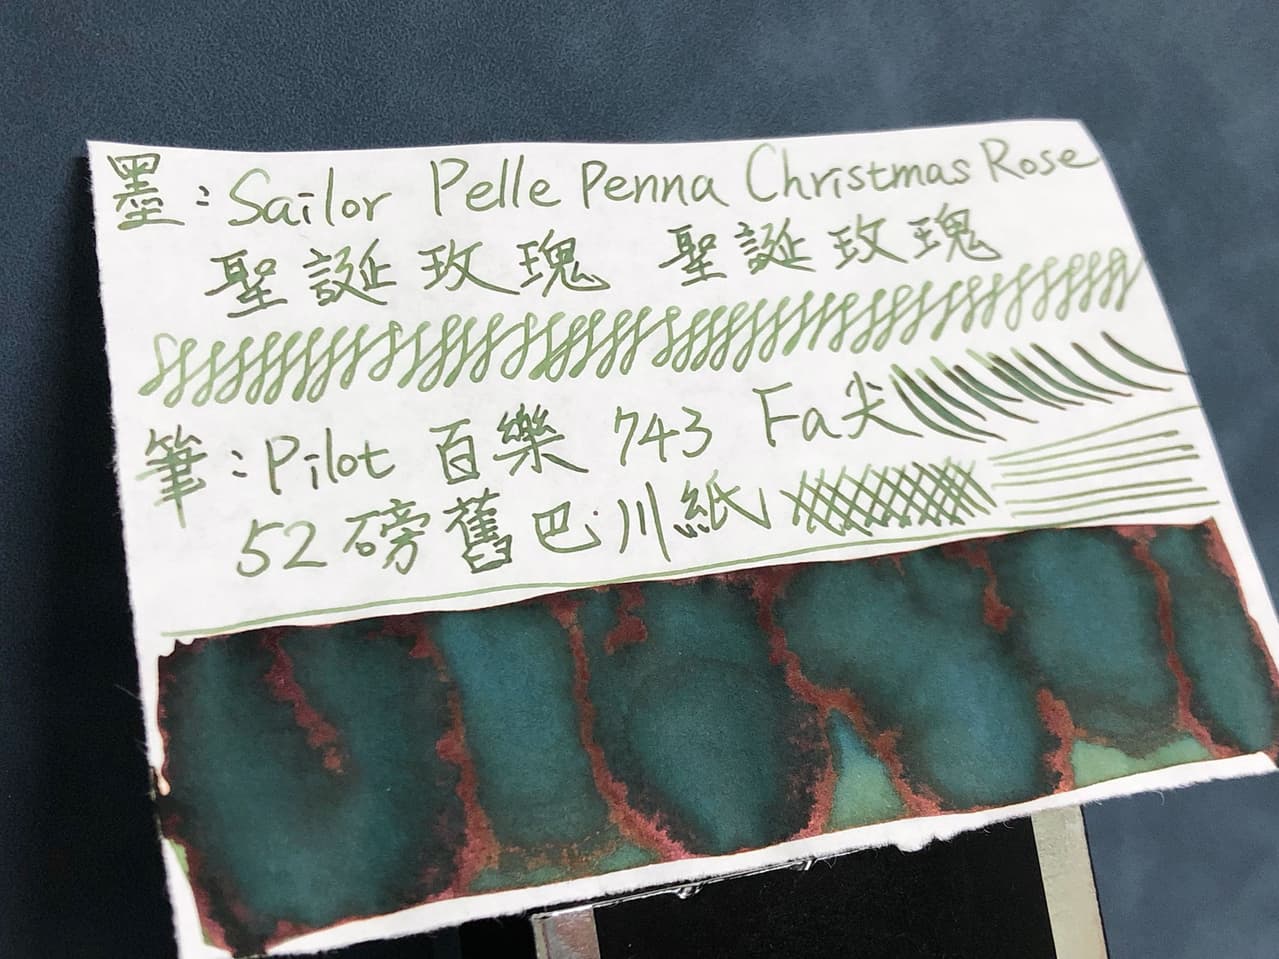 墨：Sailor Pelle Penna Christmas Rose
聖誕玫瑰 聖誕玫瑰
筆：Pilot 百樂 743 Fa尖
52磅舊巴川紙